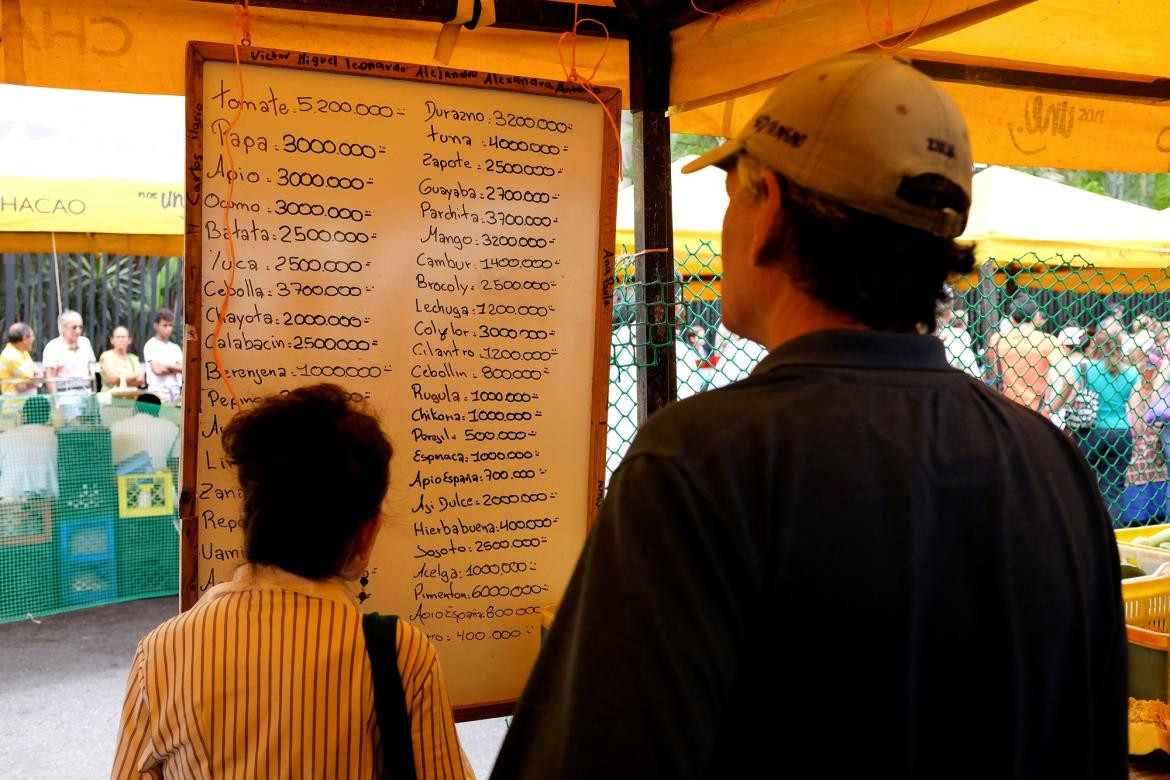 Victor Miguel Leonardo Alejandro Alexandra Antonio
tomate: 5.200.000=
Papa: 3000.000=
Apio: 3000.000=
Ocumo: 3000.000=
Batata: 2500.000=
Yuca: 2500.000=
Cebolla: 3700.000=
Chayota: 2000.000=
Calabacin: 2500000=
Berenjena: 1000000=
Pepino
Zana
Repo
Uami
Durazno: 3200.000=
tuna: 4000.000=
Zapote: 2500000=
Guayaba: 2700.000=
Parchita: 3700.000=
Mango: 3200.000=
Cambur: 1400.000=
Brocoly: 2500.000=
Lechuga: 1200.000=
Colyflor: 3000.000=
Cilantro: 1200.000=
Cebollin: 800.000=
Rugula: 1000.000=
Chikoria: 1000.000=
Parajil: 500.000=
Espinaca: 1000.000=
Apio España: 700.000=
Aji Dulce: 2000.000=
Hierbabuena: 400.000=
Josoto: 2500.000=
Acelga: 1000.000=
Pimenton: 6000.000=
Apio España: 800 000
rro: 400.000=
Carlos Mario
CHACAO
nos un